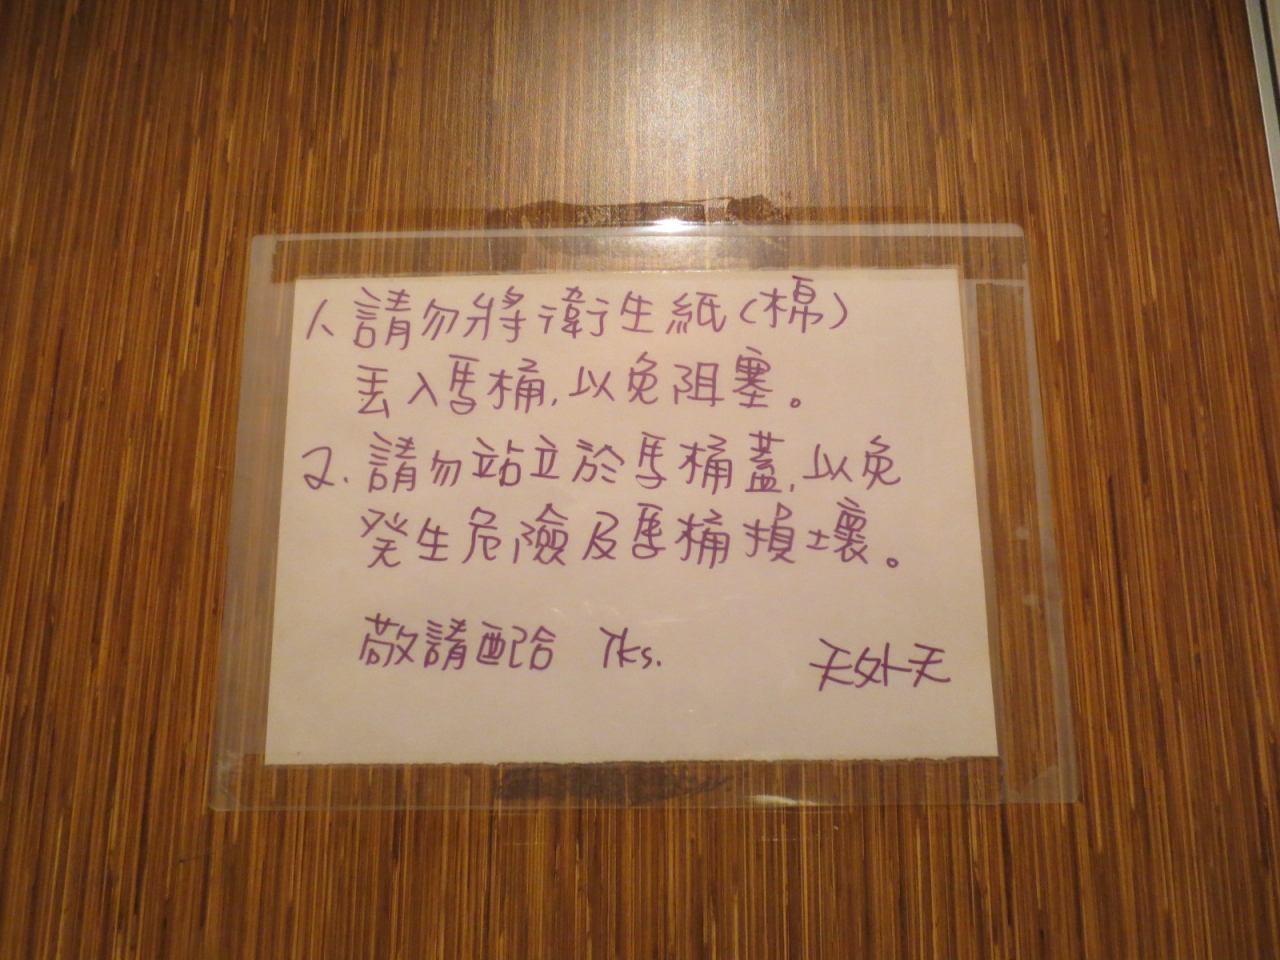 1. 請勿將衛生紙(棉)
丟入馬桶,以免阻塞。
2. 請勿站立於馬桶蓋,以免
發生危險及馬桶損壞。
敬請配合 Tks. 天外天